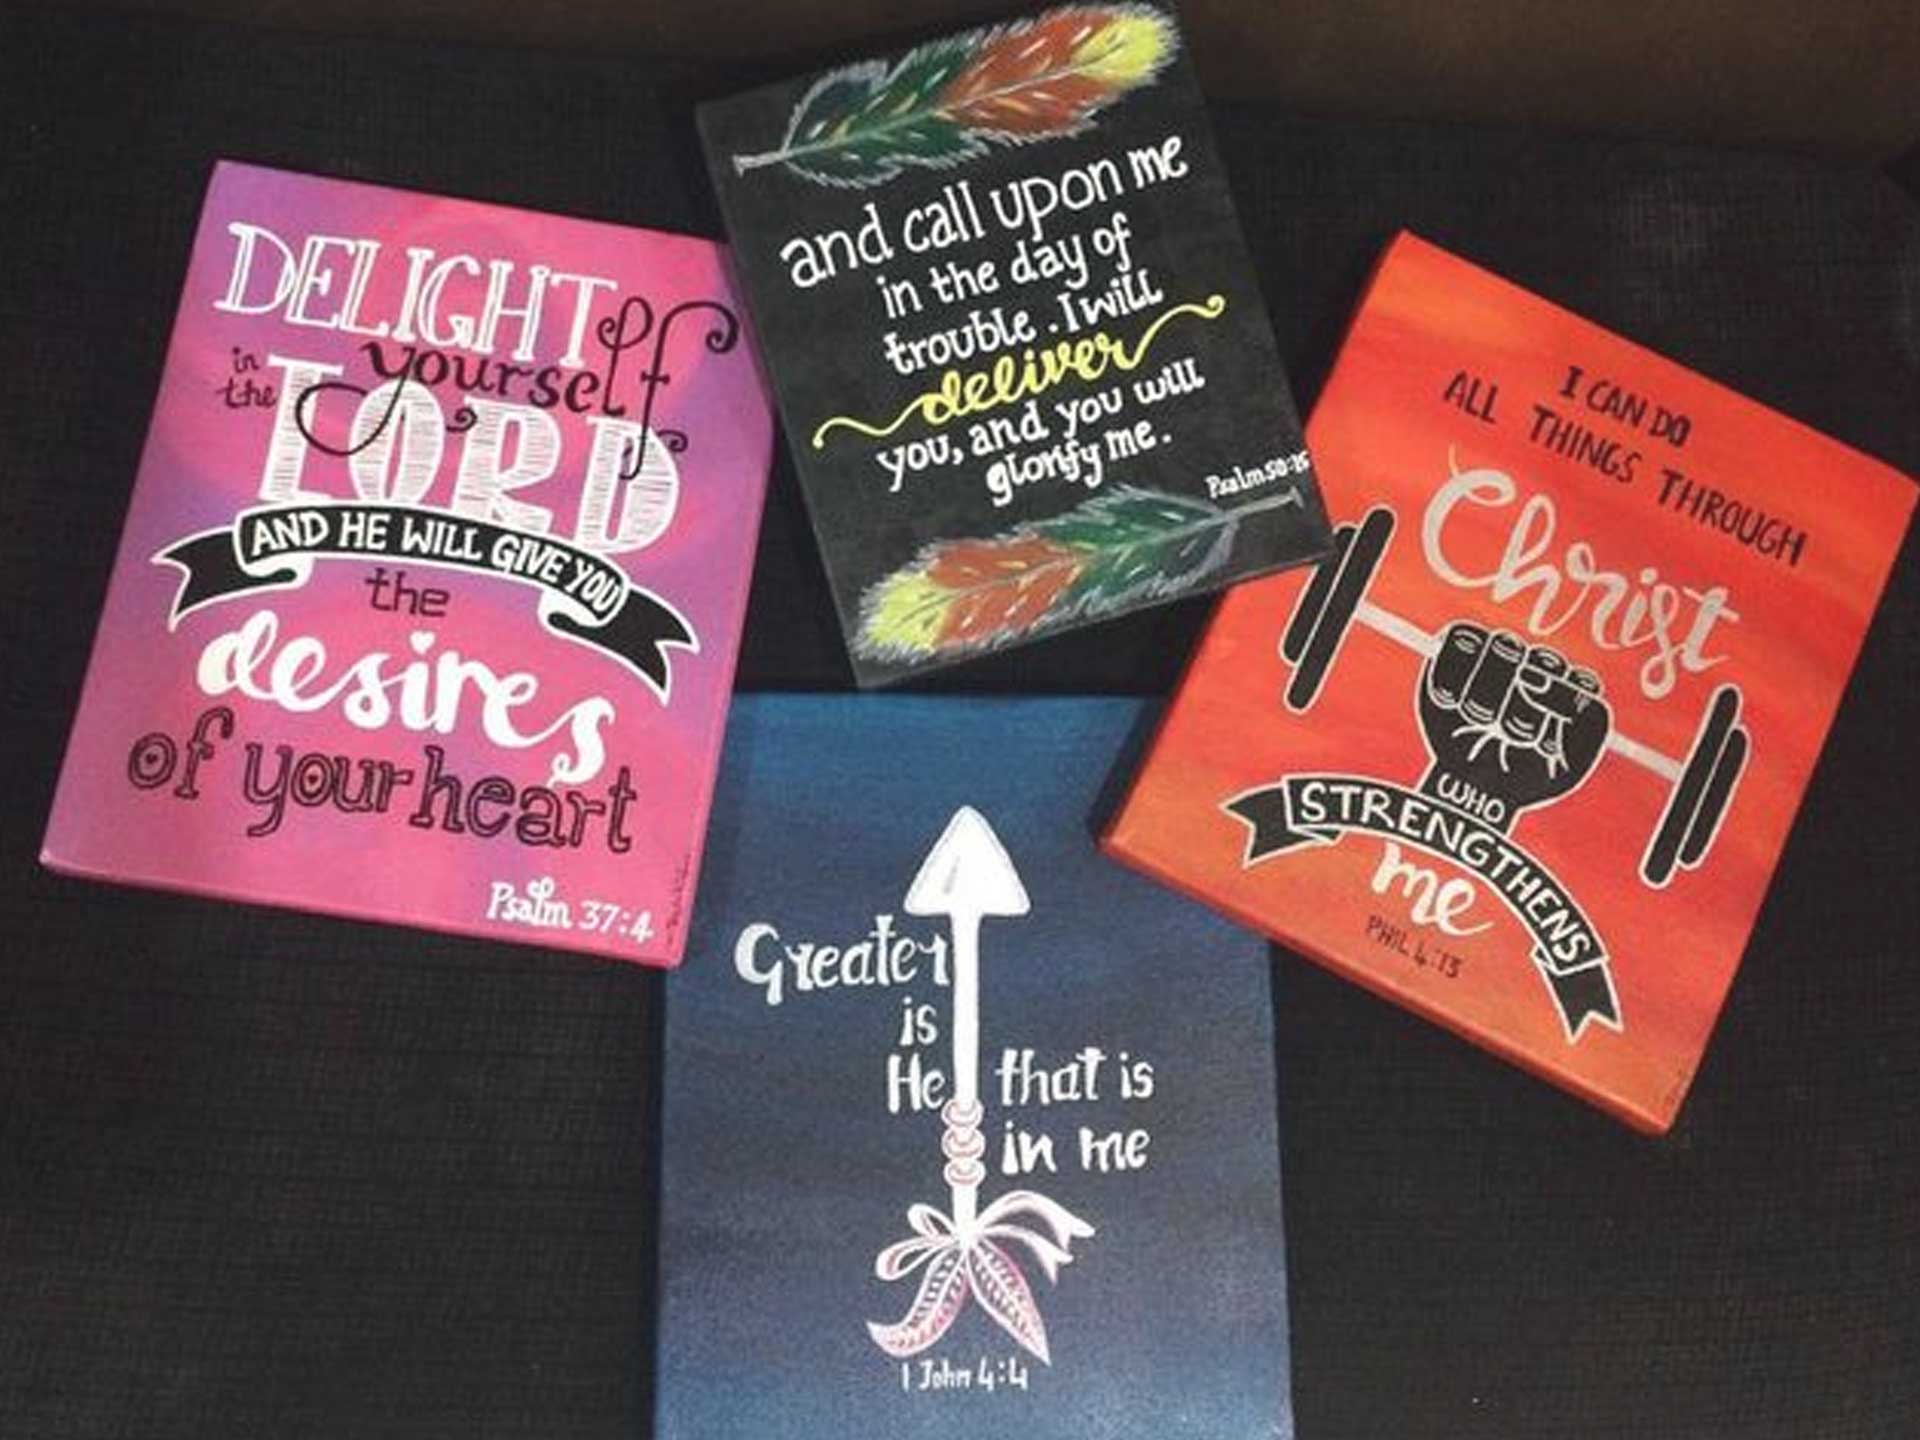 DELIGHT
yourself
in
the
LORD
AND HE WILL GIVE YOU
the
desires
of your heart
Psalm 37:4
and call upon me
in the day of
trouble. I will
deliver
you, and you will
glorify me.
Psalm 50:15
I CAN DO
ALL THINGS THROUGH
Christ
WHO
STRENGTHENS
me
PHIL 4:13
Greater
is
He that is
in me
1 John 4:4